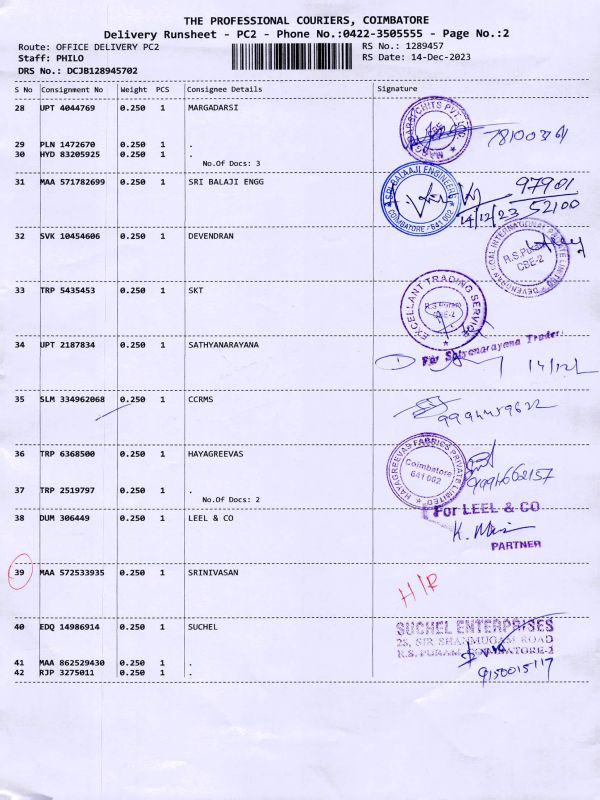 THE PROFESSIONAL COURIERS, COIMBATORE
Delivery Runsheet - PC2 - Phone No.:0422-3505555 - Page No.:2
Route: OFFICE DELIVERY PC2 RS No.: 1289457
Staff: PHILO RS Date: 14-Dec-2023
DRS No.: DCJB128945702
S No Consignment No Weight PCS Consignee Details Signature
28 UPT 4044769 0.250 1 MARGADARSI
MARGADARSI CHITS PVT.
29 PLN 1472670 0.250 1 .
30 HYD 83205925 0.250 1 .
No.Of Docs: 3
31 MAA 571782699 0.250 1 SRI BALAJI ENGG
SRI BALAAJI ENGINEERS
COIMBATORE - 641 002
97901
52100
14/12/23
32 SVK 10454606 0.250 1 DEVENDRAN
DEVENDRAN COAL INTERNATIONAL PRIVATE LIMITED
CBE-2
33 TRP 5435453 0.250 1 SKT
EXCELLANT TRADING SERVICE
34 UPT 2187834 0.250 1 SATHYANARAYANA
For Satyanarayana Traders
35 SLM 334962068 0.250 1 CCRMS
36 TRP 6368500 0.250 1 HAYAGREEVAS
HAYAGREEVAS FABRICS PRIVATE LIMITED
Coimbatore
641 002
37 TRP 2519797 0.250 1 .
No.Of Docs: 2
38 DUM 306449 0.250 1 LEEL & CO
For LEEL & CO
PARTNER
39 MAA 572533935 0.250 1 SRINIVASAN
H/R
40 EDQ 14986914 0.250 1 SUCHEL
SUCHEL ENTERPRISES
25, SIR SHANMUGAM ROAD
R.S. PURAM, COIMBATORE-2
9150015117
41 MAA 862529430 0.250 1 .
42 RJP 3275011 0.250 1 .